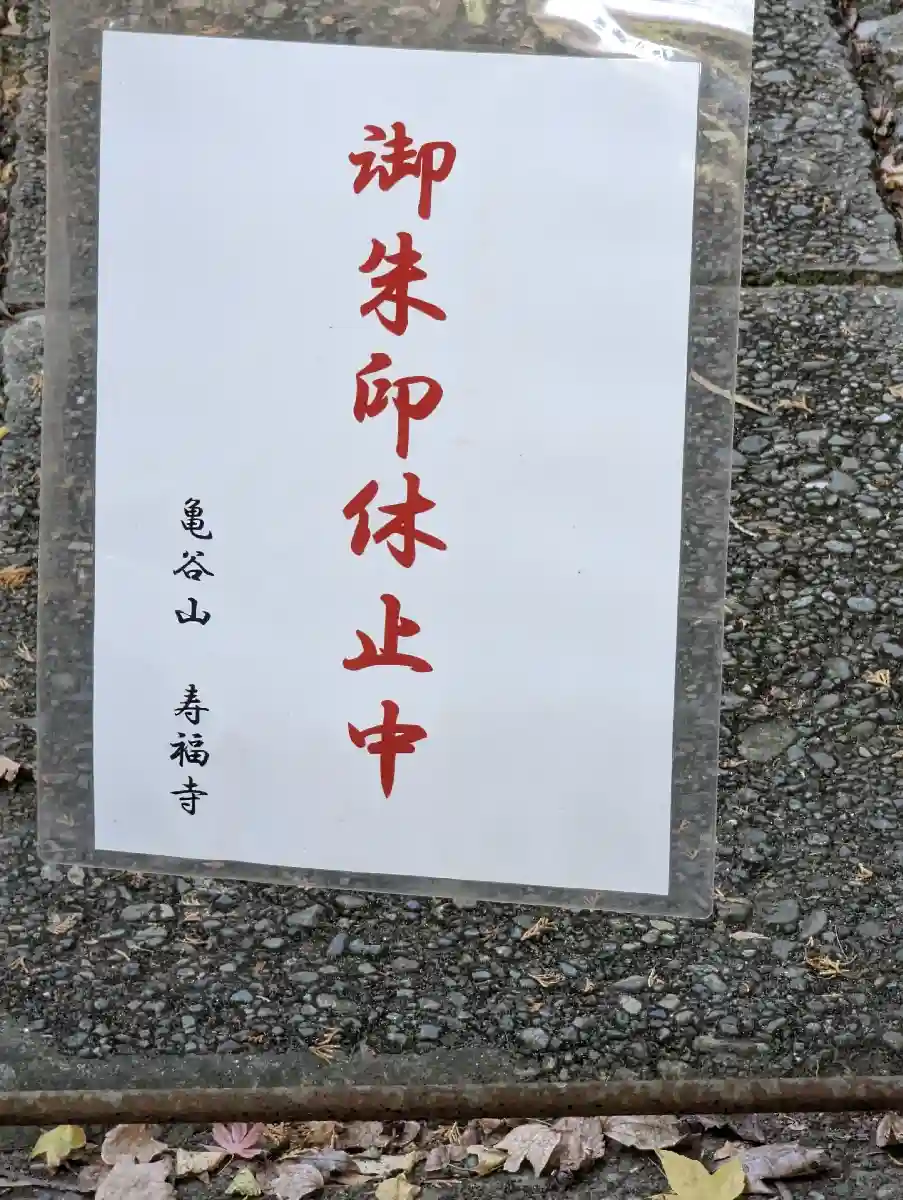 御朱印休止中
亀谷山　寿福寺